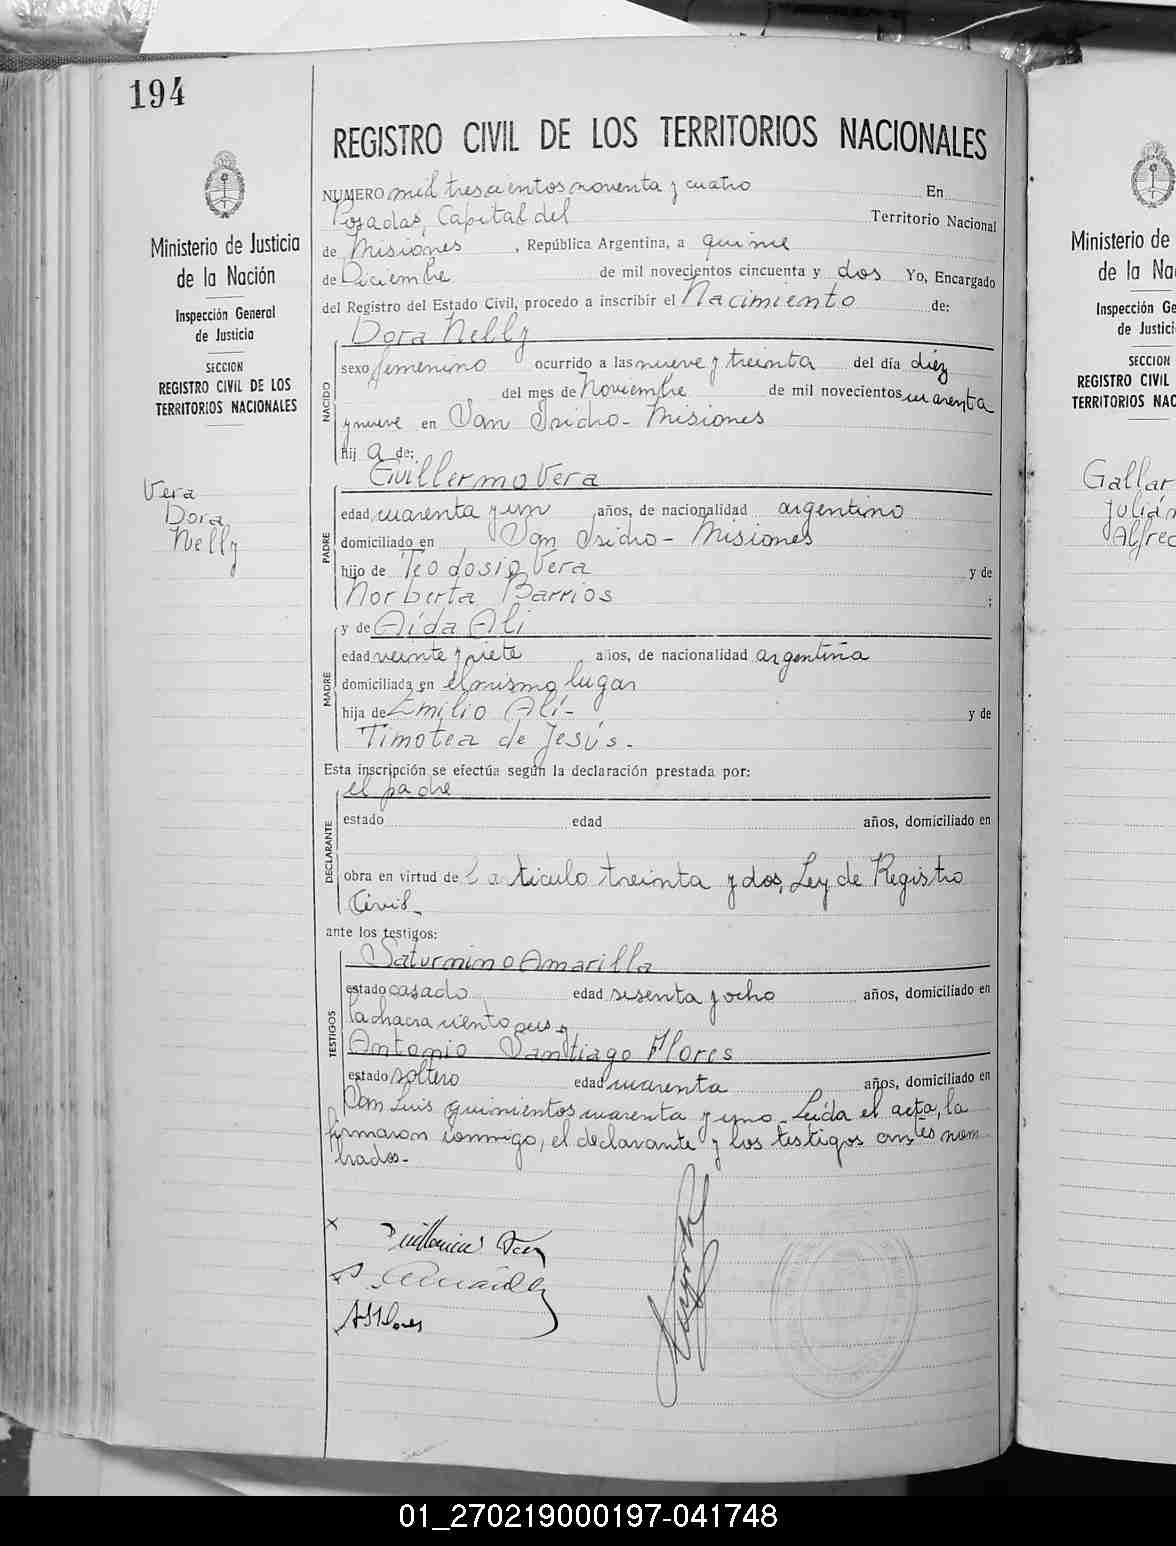 194
Ministerio de Justicia
de la Nación
Inspección General
de Justicia
SECCION
REGISTRO CIVIL DE LOS
TERRITORIOS NACIONALES
Vera
Dora
Nelly
REGISTRO CIVIL DE LOS TERRITORIOS NACIONALES
NUMERO mil trescientos noventa y cuatro En
Posadas, Capital del Territorio Nacional
de Misiones, República Argentina, a quince
de Diciembre de mil novecientos cincuenta y dos Yo, Encargado
del Registro del Estado Civil, procedo a inscribir el Nacimiento de:
Dora Nelly
NACIDO
sexo femenino ocurrido a las nueve y treinta del día diez
del mes de Noviembre de mil novecientos cuarenta
y nueve en San Isidro - Misiones
hij a de:
Guillermo Vera
PADRE
edad cuarenta y un años, de nacionalidad argentino
domiciliado en San Isidro - Misiones
hijo de Teodosio Vera y de
Norberta Barrios ;
y de Aída Ali
MADRE
edad veinte y siete años, de nacionalidad argentina
domiciliada en el mismo lugar
hija de Emilio Alí - y de
Timotea de Jesús.
Esta inscripción se efectúa según la declaración prestada por:
el padre
DECLARANTE
estado edad años, domiciliado en
obra en virtud del artículo treinta y dos, Ley de Registro
Civil -
ante los testigos:
Saturnino Amarilla
TESTIGOS
estado casado edad sesenta y ocho años, domiciliado en
la chacra ciento seis y
Antonio Santiago Flores
estado soltero edad cuarenta años, domiciliado en
San Luis quinientos cuarenta y uno - Leída el acta, la
firmaron conmigo, el declarante y los testigos antes nom
brados -
x Guillermo Vera
S. Amarilla
A S Flores
Ministerio de
de la Na
Inspección Ge
de Justici
SECCION
REGISTRO CIVIL
TERRITORIOS NAC
Gallar
Julián
Alfred
01_270219000197-041748